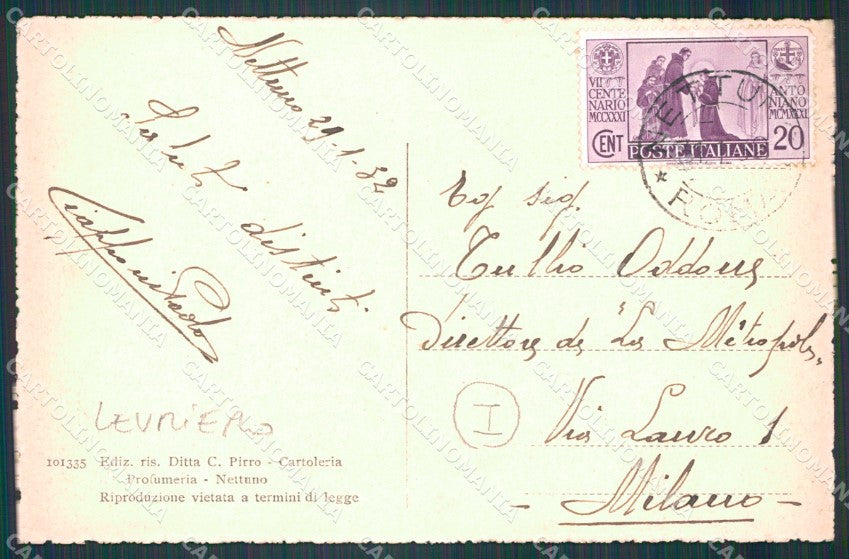 Nettuno 29-1-32
Saluti distinti
VII CENTENARIO MCCXXXI
ANTONIANO MCMXXXI
CENT 20
POSTE ITALIANE
NETTUNO
ROMA
Eg. sig.
Tullio Oddone
Direttore de "La Métropole"
Via Lauro 1
Milano
I
LEVRIERO
101335 Ediz. ris. Ditta C. Pirro - Cartoleria
Profumeria - Nettuno
Riproduzione vietata a termini di legge
CARTOLINOMANIA